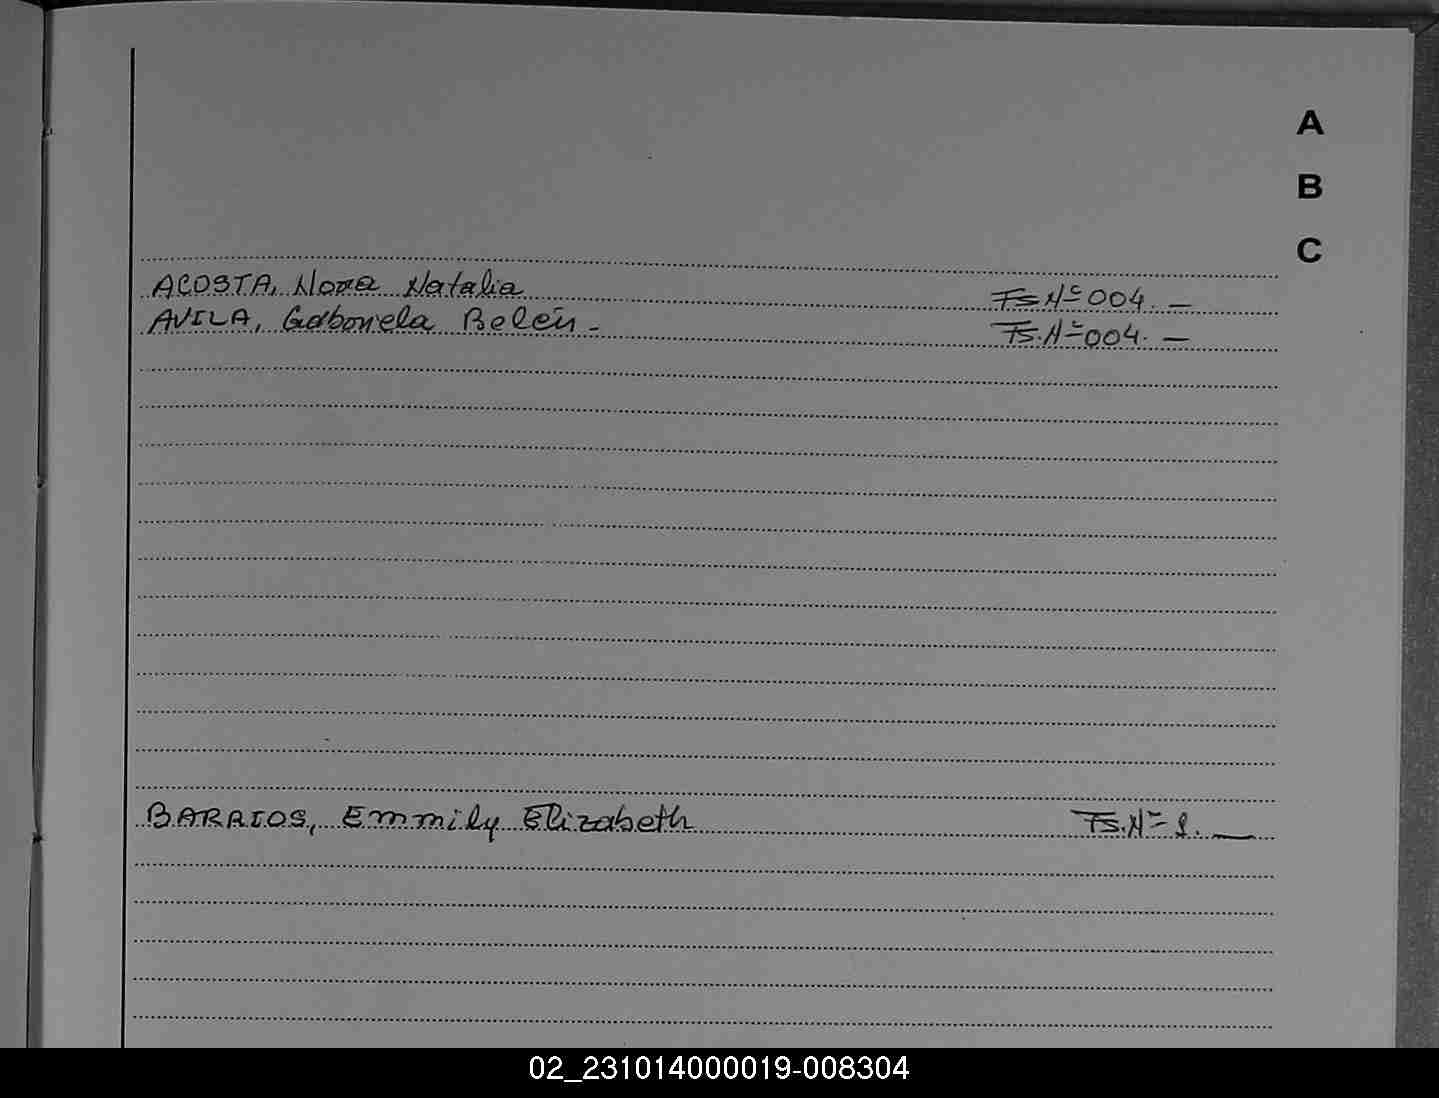 A
B
C
ACOSTA, Nora Natalia Fs Nº 004. —
AVILA, Gabriela Belén - Fs. Nº 004. —
BARRIOS, Emmily Elizabeth Fs. Nº 1. —
02_231014000019-008304